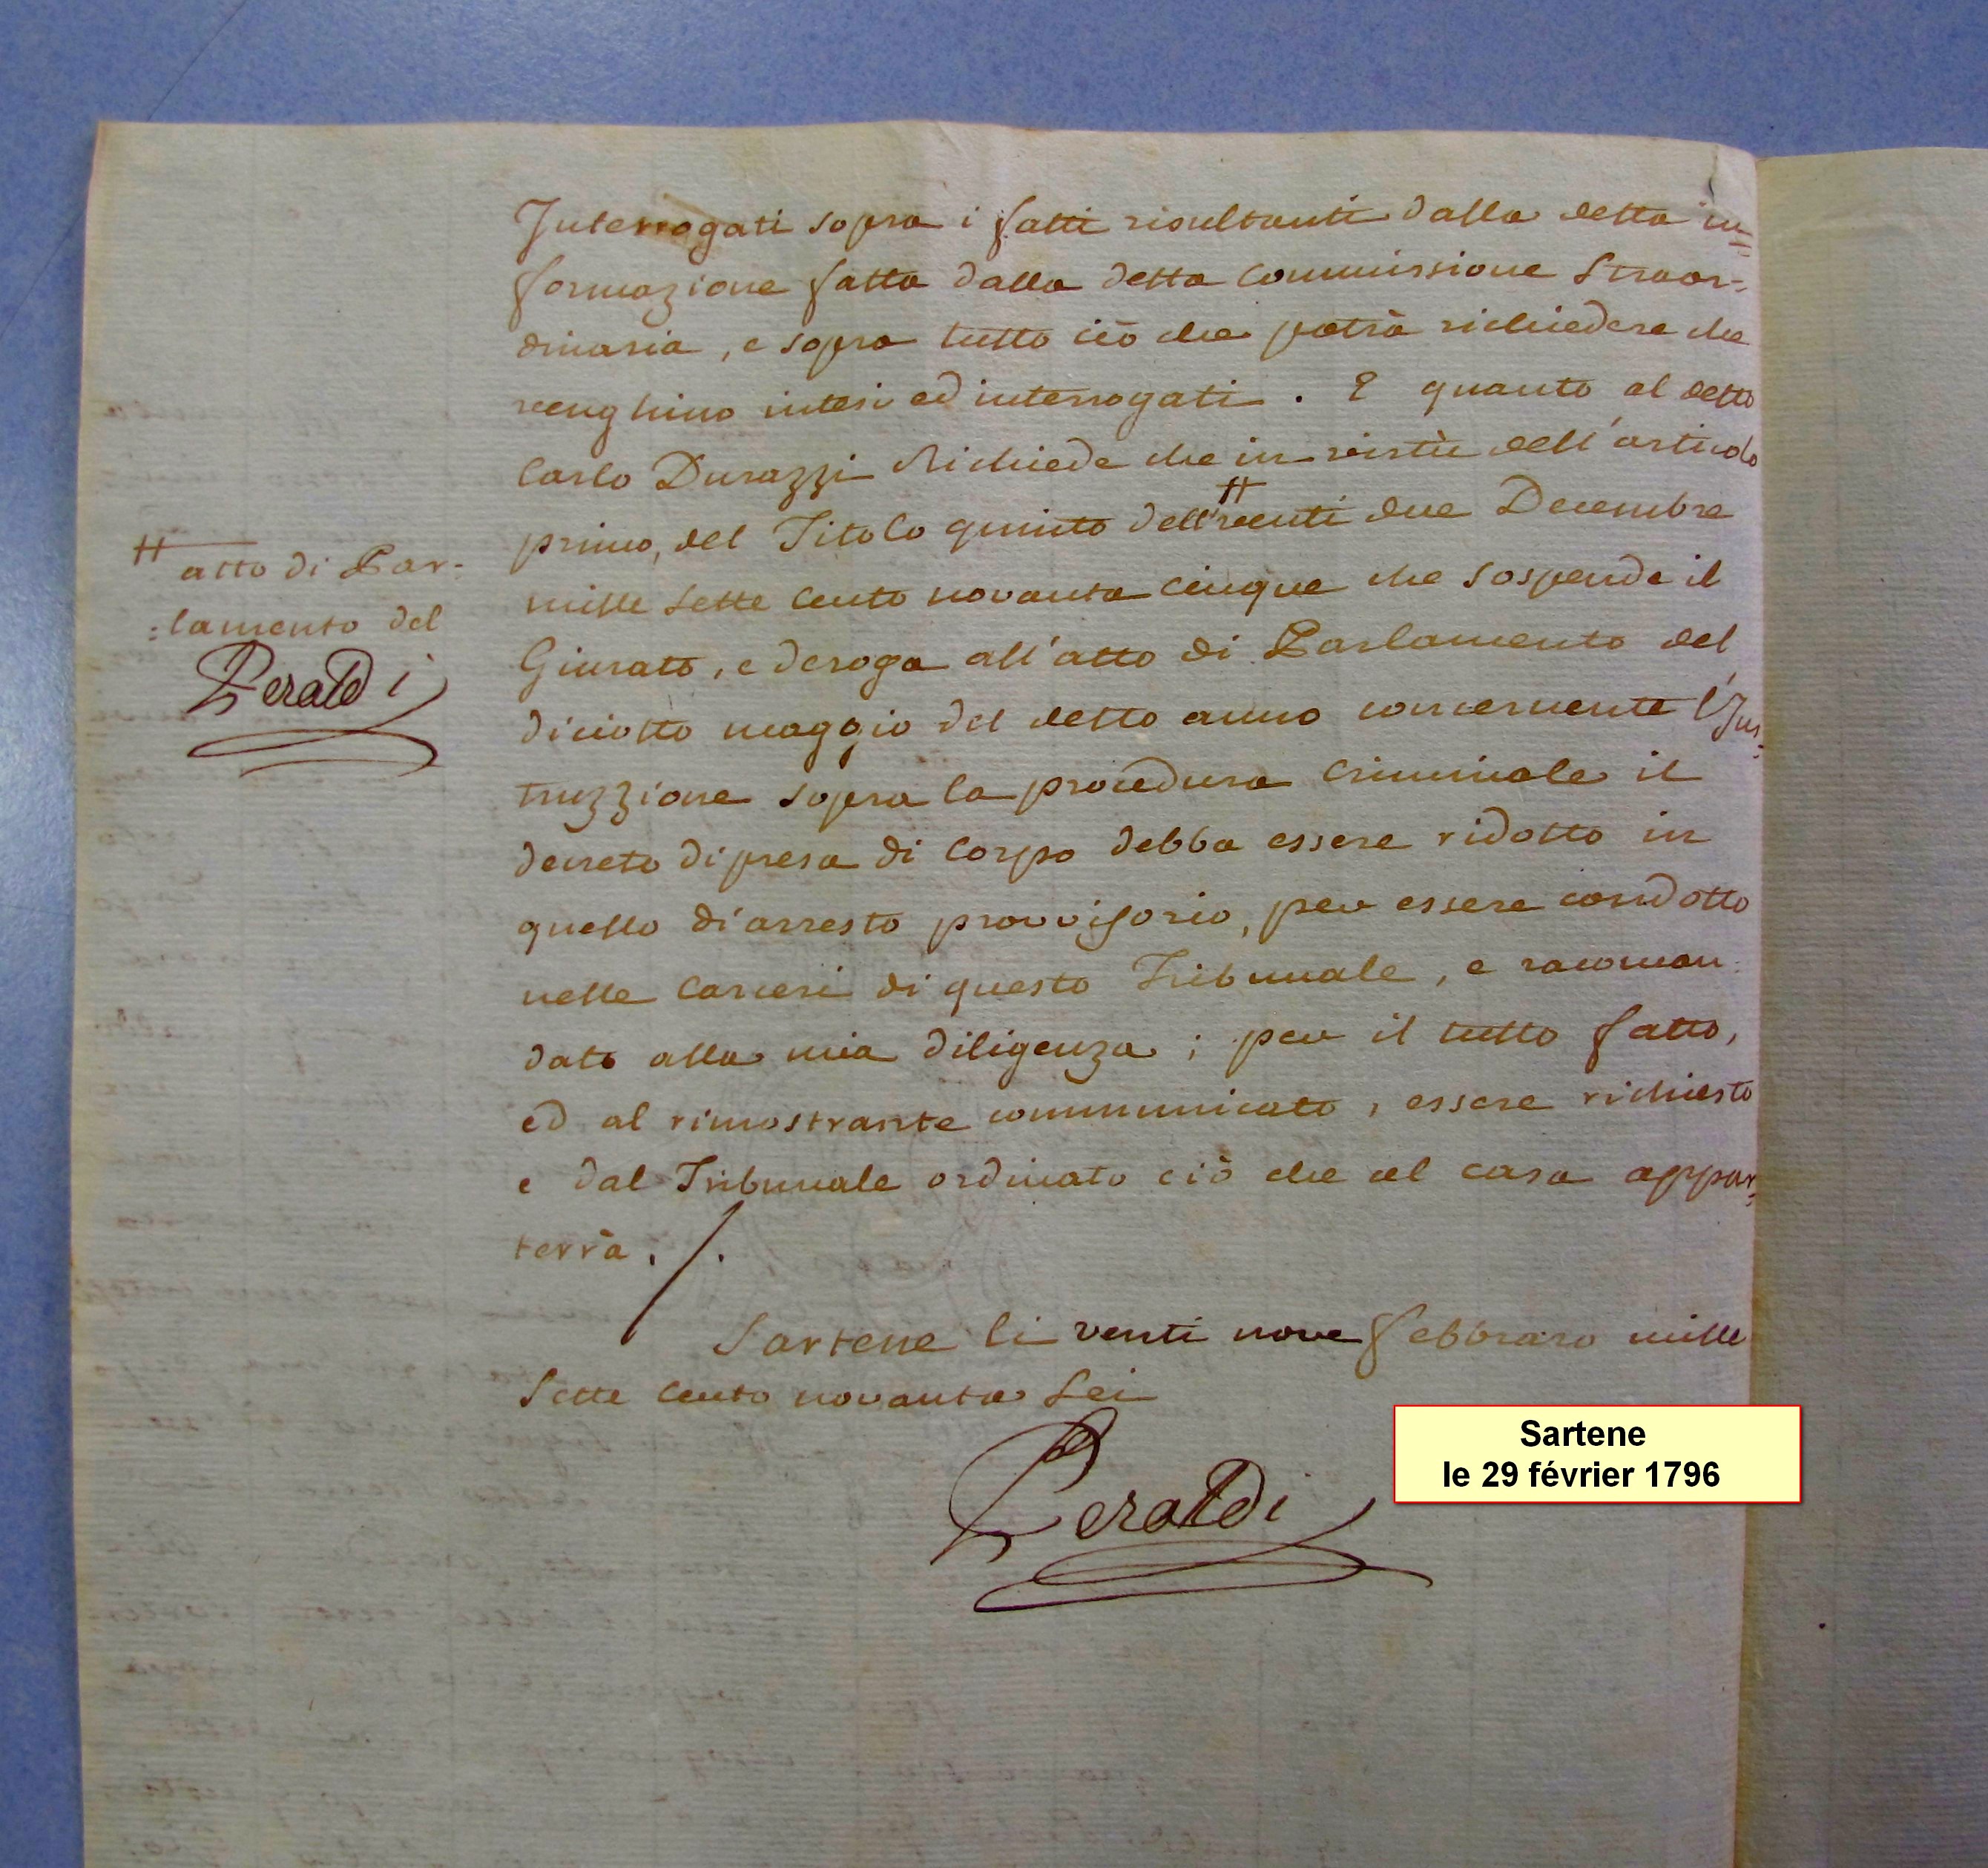 Interrogati sopra i fatti risultanti dalla detta in=
formazione fatta dalla detta Commissione Straor=
dinaria, e sopra tutto ciò che potrà richiedere che
venghino intesi ed interrogati. E quanto al detto
Carlo Durazzi Richiede che in virtù dell'articolo
primo, del Titolo quinto dell' # venti due Decembre
mille sette cento novanta cinque che sospende il
Giurato, e deroga all'atto di Parlamento del
diciotto maggio del detto anno concernente l'Jns=
truzzione sopra la procedura criminale il
decreto di presa di corpo debba essere ridotto in
quello di arresto provvisorio, per essere condotto
nelle carceri di questo Tribunale, e racoman:
dato alla mia diligenza; per il tutto fatto,
ed al rimostrante communicato, essere richiesto
e dal Tribunale ordinato ciò che al caso appar=
terrà ./.
# atto di Par-
:lamento del
Peraldi
Sartene li venti nove febbraro mille
Sette cento novanta Sei
Peraldi
Sartene
le 29 février 1796